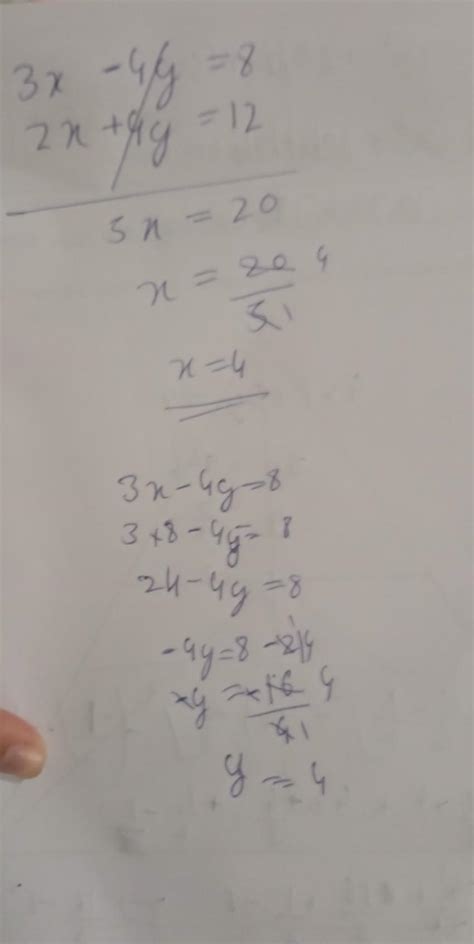 3x - 4y = 8
2x + 4y = 12
5x = 20
x = 20/5 4 1
x = 4
3x - 4y = 8
3 × 8 - 4y = 8
24 - 4y = 8
-4y = 8 - 24
-y = -16/4 4 1
y = 4